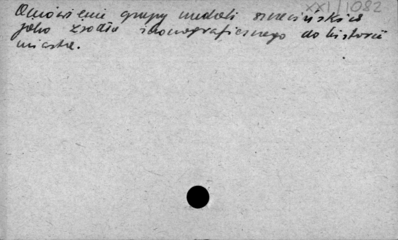 XXI/1082
Omówienie grupy medali szczecińskich
jako źródła ikonograficznego do historii
miasta.